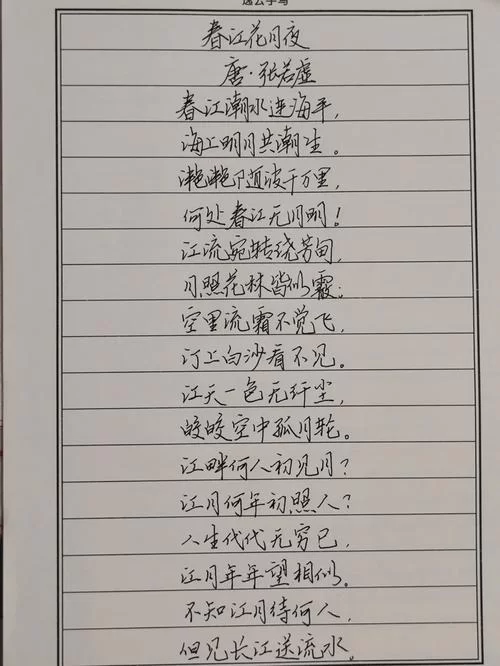 春江花月夜
唐·张若虚
春江潮水连海平，
海上明月共潮生。
滟滟随波千万里，
何处春江无月明！
江流宛转绕芳甸，
月照花林皆似霰；
空里流霜不觉飞，
汀上白沙看不见。
江天一色无纤尘，
皎皎空中孤月轮。
江畔何人初见月？
江月何年初照人？
人生代代无穷已，
江月年年望相似。
不知江月待何人，
但见长江送流水。